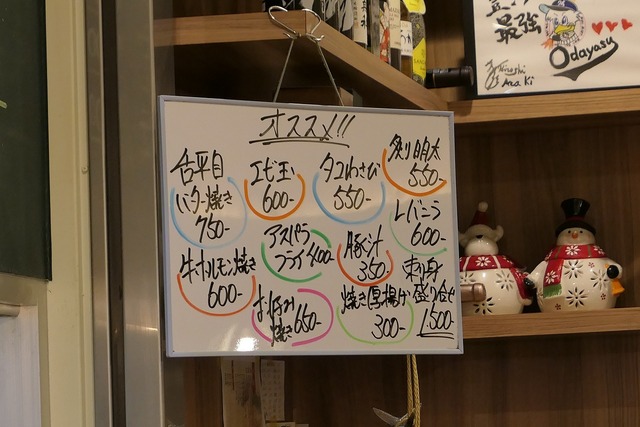 オススメ!!
炙り明太
550-
タコわさび
550-
エビ玉
600-
舌平目
バター焼き
750-
レバニラ
600-
豚汁
350-
アスパラ
フライ 400-
牛ホルモン焼き
600-
刺身
盛り合せ
1,500-
焼き厚揚げ
300-
お好み
焼き 650-
最強
Odayasu